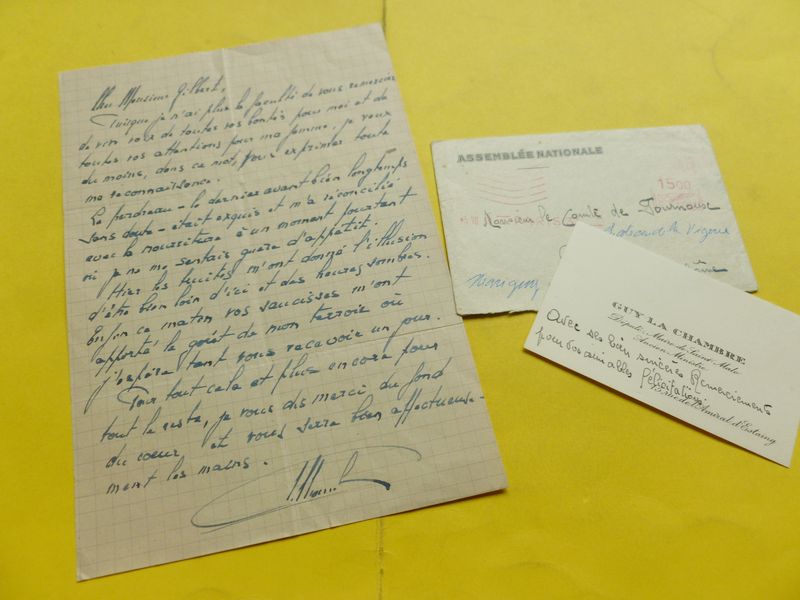 Cher Monsieur Gilbert,
Puisque je n'ai plus la faculté de vous remercier
de vive voix de toutes vos bontés pour moi et de
toutes vos attentions pour ma femme, je veux
du moins, dans ce mot, vous exprimer toute
ma reconnaissance.
Le perdreau - le dernier avant bien longtemps
sans doute - était exquis et m'a réconcilié
avec la nourriture à un moment pourtant
où je ne me sentais guère d'appétit.
Hier les truites m'ont donné l'illusion
d'être bien loin d'ici et des heures sombres.
Enfin ce matin vos saucisses m'ont
apporté le goût de mon terroir où
j'espère tant vous recevoir un jour.
Pour tout cela et plus encore pour
tout le reste, je vous dis merci du fond
du coeur et vous serre bien affectueuse-
ment les mains.
ASSEMBLÉE NATIONALE
1500
Monsieur le Comte de Tournoux
Marigny
GUY LA CHAMBRE
Député-Maire de Saint-Malo
Ancien Ministre
Avec ses bien sincères Remerciements
pour vos aimables félicitations
d'Estaing